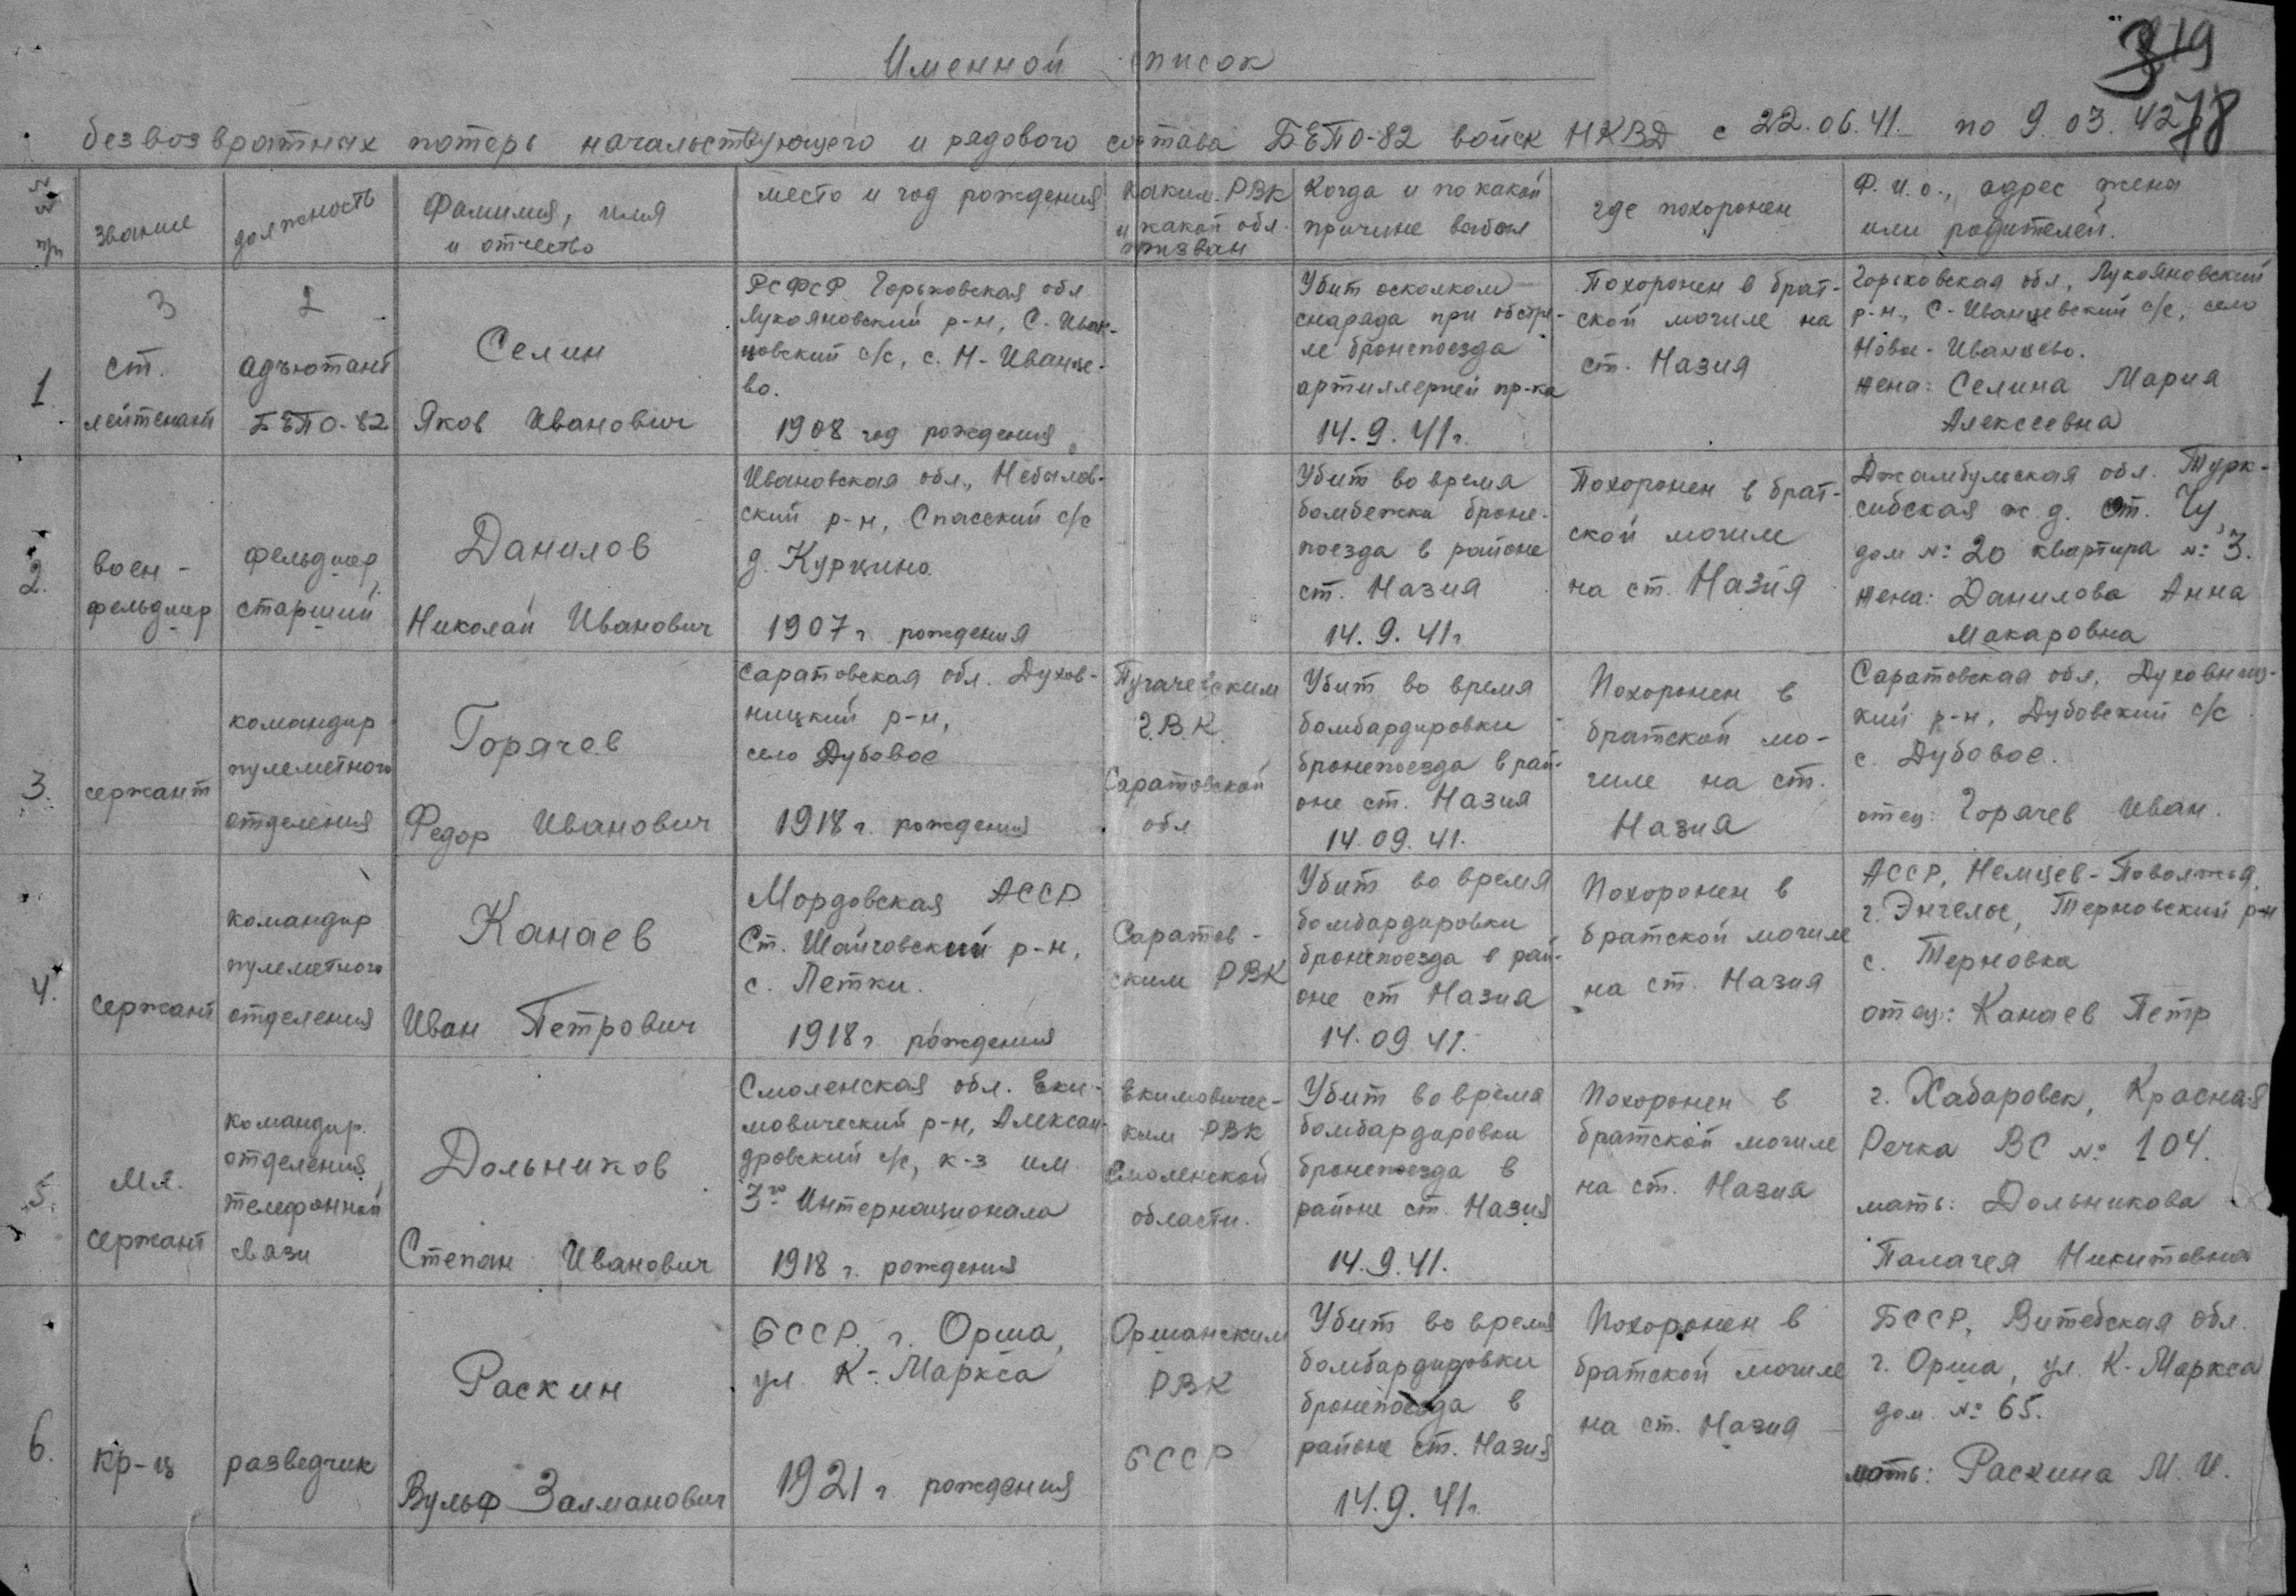 Именной список
безвозвратных потерь начальствующего и рядового состава БЕПО-82 войск НКВД с 22.06.41. по 9.03.42
319
78
№№ п/п
звание
должность
Фамилия, имя
и отчество
место и год рождения
каким РВК
и какой обл.
призван
Когда и по какой
причине выбыл
где похоронен
Ф.И.О., адрес жена
или родителей.
1.
3
ст.
лейтенант
2
адъютант
БЕПО-82
Селин
Яков Иванович
РСФСР Горьковская обл
Лукояновский р-н, С. Иван-
цовский с/с, с. Н-Иванце-
во.
1908 год рождения
Убит осколком
снаряда при обстре-
ле бронепоезда
артиллерией пр-ка
14.9.41г.
Похоронен в брат-
ской могиле на
ст. Назия
Горьковская обл, Лукояновский
р-н., С-Иванцевский с/с, село
Ново-Иванцево.
жена: Селина Мария
Алексеевна
2.
воен-
фельдшер
фельдшер
старший
Данилов
Николай Иванович
Ивановская обл., Небылов-
ский р-н, Спасский с/с
д. Куркино.
1907 г. рождения
Убит во время
бомбежки броне-
поезда в районе
ст. Назия
14.9.41г
Похоронен в брат-
ской могиле
на ст. Назия
Джамбульская обл. Турк-
сибская ж.д. ст. Чу,
дом №: 20 квартира №: 3.
жена: Данилова Анна
Макаровна
3.
сержант
командир
пулеметного
отделения
Горячев
Федор Иванович
Саратовская обл. Духов-
ницкий р-н,
село Дубовое
1918 г. рождения
Пугачевским
Г.В.К.
Саратовской
обл
Убит во время
бомбардировки
бронепоезда в рай-
оне ст. Назия
14.09.41.
Похоронен в
братской мо-
гиле на ст.
Назия
Саратовская обл, Духовниц-
кий р-н, Дубовский с/с
с. Дубовое.
отец: Горячев Иван.
4.
сержант
командир
пулеметного
отделения
Канаев
Иван Петрович
Мордовская АССР
Ст. Шайговский р-н,
с. Летки.
1918 г. рождения
Саратов-
ским РВК
Убит во время
бомбардировки
бронепоезда в рай-
оне ст Назия
14.09.41.
Похоронен в
братской могиле
на ст. Назия
АССР, Немцев-Поволжья,
г. Энгельс, Терновский р-н
с. Терновка
отец: Канаев Петр
5.
Мл.
сержант
командир
отделения
телефонной
связи
Дольников
Степан Иванович
Смоленская обл. Еки-
мовический р-н, Алексан-
дровский с/с, к-з им.
3го Интернационала
1918 г. рождения
Екимовичес-
ким РВК
Смоленской
области.
Убит во время
бомбардировки
бронепоезда в
районе ст. Назия
14.9.41.
Похоронен в
братской могиле
на ст. Назия
г. Хабаровск, Красная
Речка ВС №: 104.
мать: Дольникова
Палагея Никитовна
6.
кр-ц
разведчик
Раскин
Вульф Залманович
БССР, г. Орша,
ул. К-Маркса
1921 г. рождения
Оршанским
РВК
БССР
Убит во время
бомбардировки
бронепоезда в
районе ст. Назия
14.9.41г.
Похоронен в
братской могиле
на ст. Назия
БССР, Витебская обл.
г. Орша, ул. К-Маркса
дом №: 65.
мать: Раскина М.И.